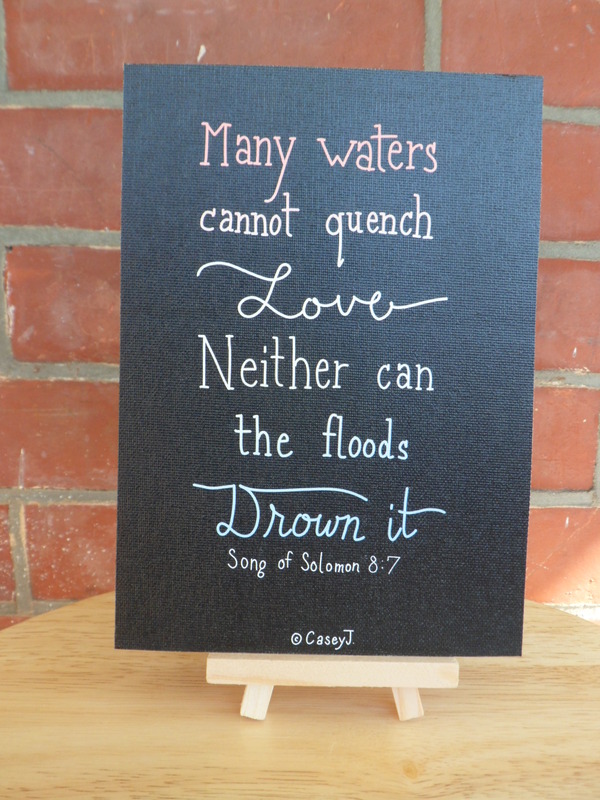 Many waters
cannot quench
Love
Neither can
the floods
Drown it
Song of Solomon 8:7
© CaseyJ.